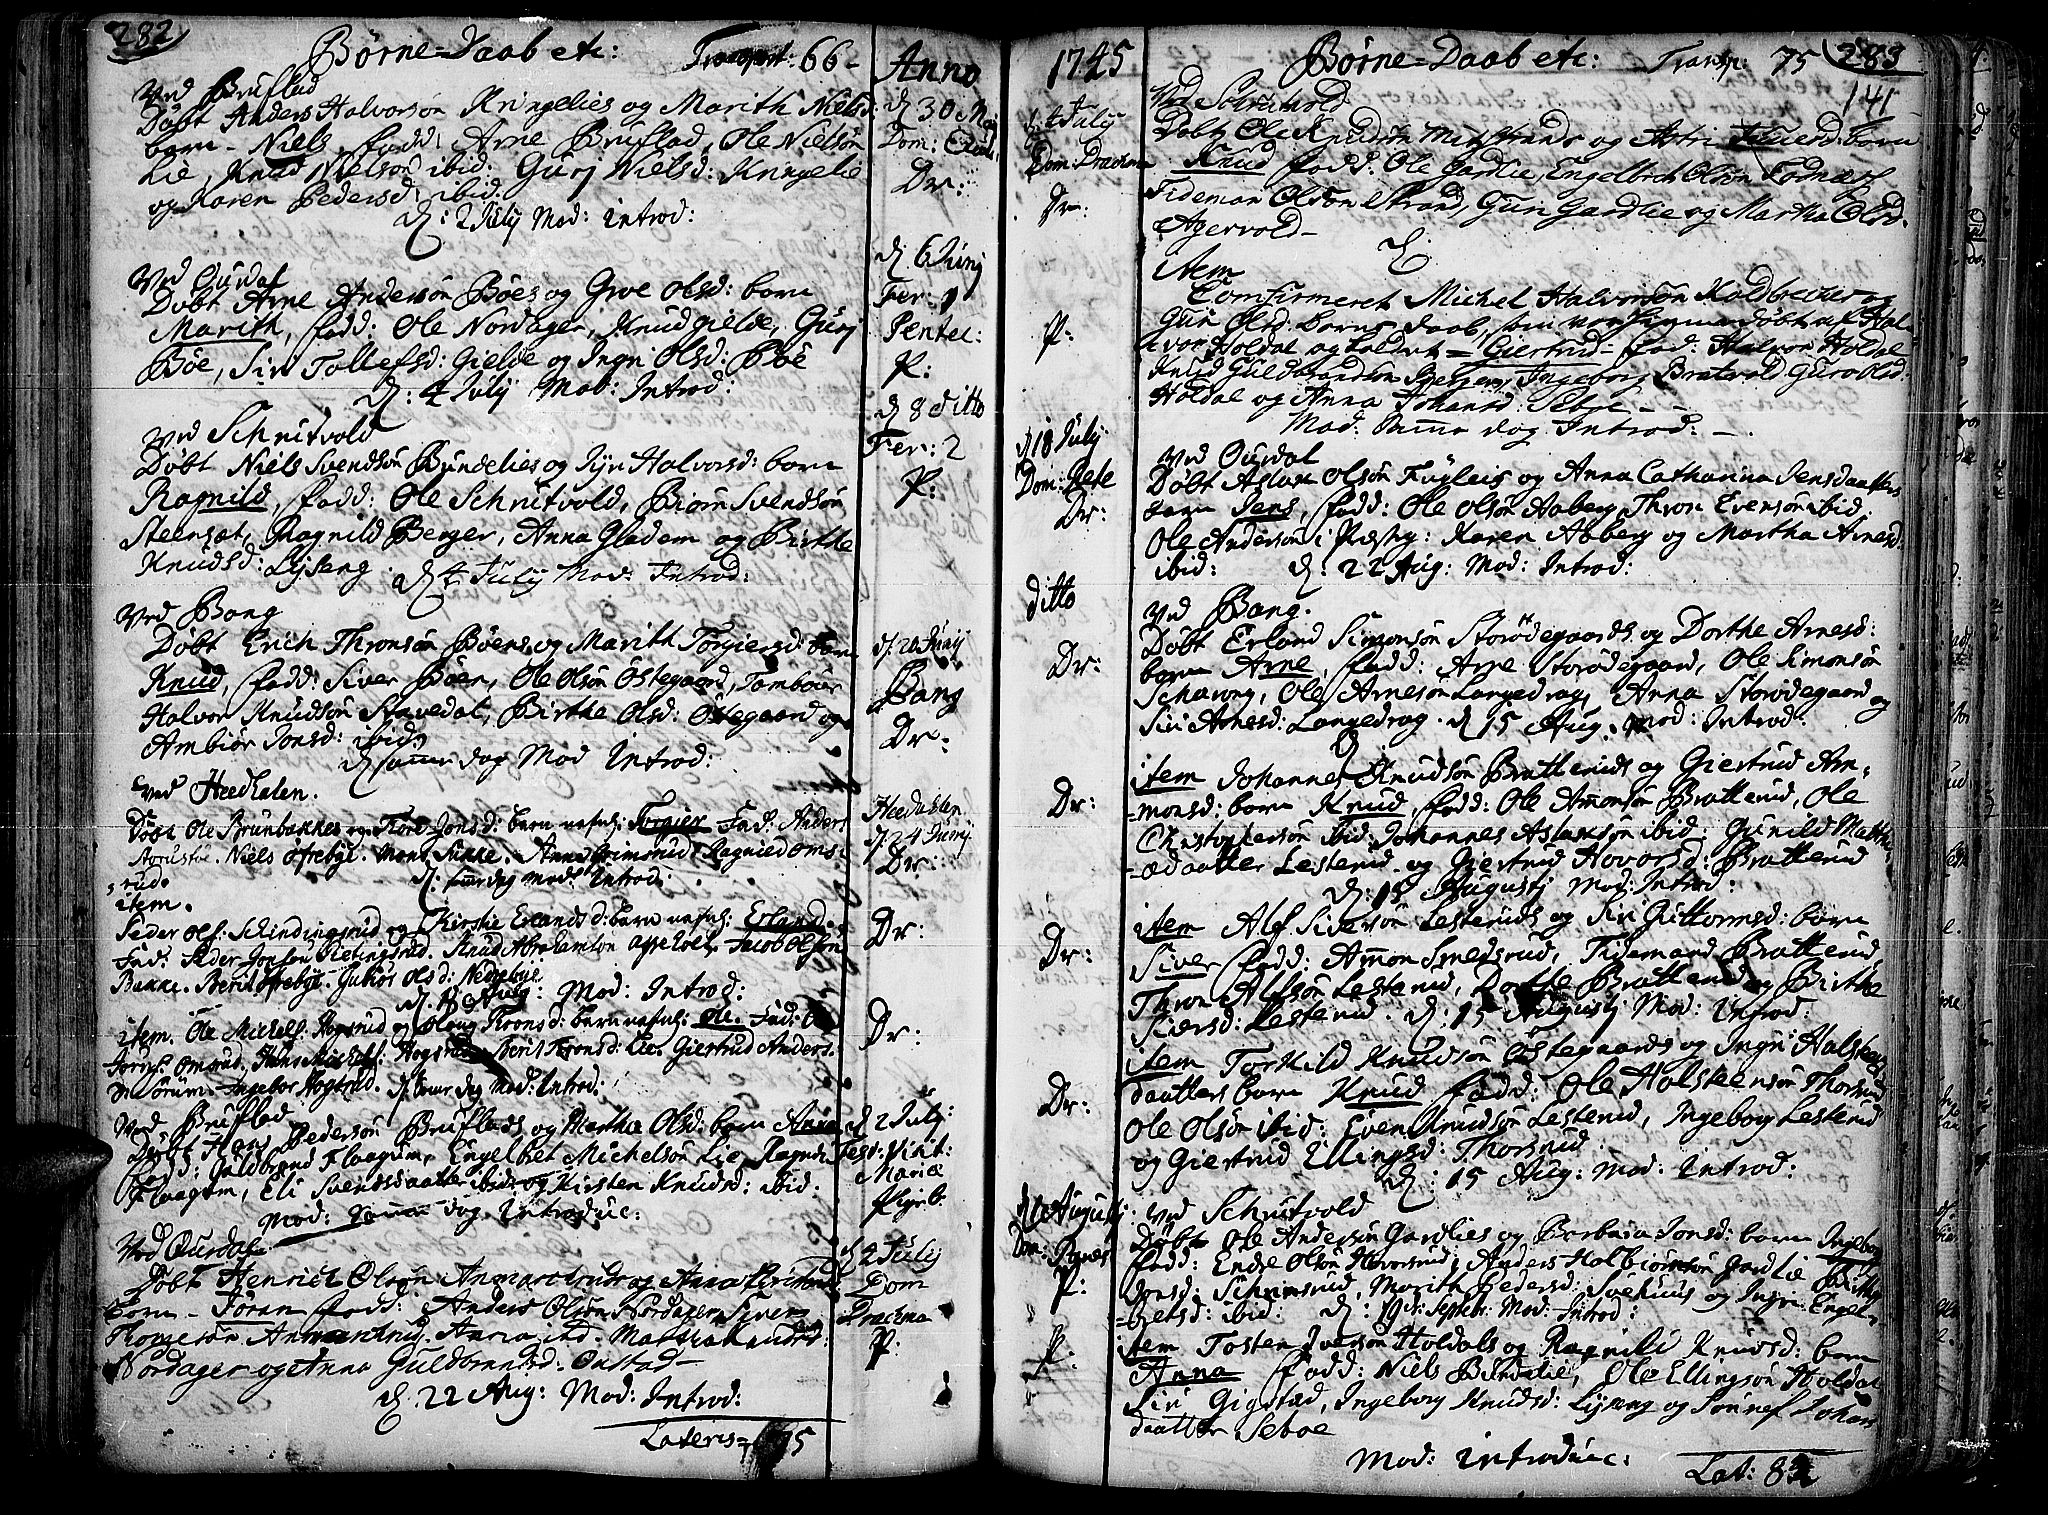 282
Børne-Daab etc: Transport: 66-
Anno
Ved Bruflad
Døbt Anders Halvorsøn Kringelies og Marith Nielsd:
barn - Niels, fadd: Arne Bruflad, Ole Nielsøn
Lie, Knud Nielsøn ibid: Gurj Nielsd: Kringelie
og Karen Pedersd: ibid:
d: 2 July Mod: introd:
d 30 Maj
Dom: Exaudi
Dr:
Ved Ourdal
Døbt Arne Andersøn Bøes og Groe Olsd: barn
Marith, fadd: Ole Nordager, Knud Gielde, Gurj
Bøe, Siri Tollefsd: Gielde og Ingri Olsd: Bøe
d: 4 July Mod: Introd:
d 6 Junj
Fer: 1
Pentec:
P:
Ved Schrutvold
Døbt Niels Svendsøn Bundelies og Jyri Halvorsd: barn
Ragnild, fadd: Ole Schrutvold, Biørn Svendsøn
Steensæt, Ragnild Berger, Anna Gladem og Birthe
Knudsd: Lyseng. d 4 July Mod: Introd:
d 8 ditto
Fer: 2
P:
Ved Bang
Døbt Erich Thronsøn Bøens og Marith Torgiersd: barn
Knud, fadd: Siver Bøen, Ole Olsøn Østegaard, Tambour
Halvor Knudsøn Stavedal, Birthe Olsd: Østegaard og
Ambiør Jonsd: ibid:
d samme dag Mod Introd:
d. 20 Junj
Bang
Dr:
Ved Heedhalen.
Døbt Ole Brunbakkes og Kari Jonsd: barn nafnl: Torgier Fad: Anders
Agrustoe. Niels Øfrebye. Mons Sukke. Anne Grimsrud. Ragnild Oms-
rud. d: samme dag Mod: Introd:
Heedahlen
d. 24 Junj
Dr:
item.
Peder Ols: Schindingsrud og Kirstie Erlandsd: barn nafnl: Erland.
Fad: Peder Jonsen Kletingsrud. Knud Abrahamson Asseholt, Jacob Olssen
Bakke. Berit Øfrebye. Guniør Olsd: Nedrebye.
d 8 Aug: Mod: Introd:
Dr:
item. Ole Michels: Hogsrud og Oloug Tronsd: barn nafnl: Ole. Fad: Ole
Omsrud, Hans Michels: Hogsrud. Berit Tronsd: Lie. Giertrud Anders.
Sørum. Ingebor Hogsrud. d. samme dag Mod: Introd:
Dr:
Ved Bruflad
Døbt Hans Pedersøn Bruflads og Marthe Olsd: barn Anna
fadd: Guldbrand Flaagum, Engelbret Michelsøn Lie, Ragnild
Flaagum, Eli Svendsdaatter ibid: og Kirsten Knudsd: ibid.
Mod: samme dag Introduc:
d 2 July:
Fest: Visit:
Mariæ
Ved Ourdal
Døbt Henrich Olsøn Anmarchruds og Anna
barn - Jøran fadd: Anders Olsøn Nordager, Siver
Thomesøn Anmarchrud. Anna ibd. Marthe Knudsd:
Nordager og Anna Guldbrandsd: Onstad-
d: 22 Aug: Mod: Introd:
d 2 July
Dom
Drachma
P:
Lateris = 75
1745
Børne-Daab etc: Transp: 75
283
141
d 4 July
Dom: Drachma
Dr:
Ved Schrutvold
Døbt Ole Knudsøn og Astri barn
Knud fadd: Ole Gardlie, Engelbrech Olsøn Fodnæs
Tideman Olsøn Strand, Guri Gardlie og Martha Olsd.
Agervold-
d:
P:
Item
Confirmeret Michel Halvorsøn Koldbrecher og
Guri Olsd: barns Daab, som var hjemmedøbt af Hal-
vor Holdal og kaldet = Giertrud - fad: Halvor Holdal
Knud Guldbrandsøn Ingeborg Bratvold Guro Olsd:
Holdal og Anna Johansd: Seboe - -
Mod: Samme dag Introd: -.
d 18 July
Dom: Rete
Dr:
Ved Ourdal
Døbt Aslax Olsøn Fugleis og Anna Catharina Jensdaatters
barn Jens, fadd: Ole Olsøn Aaberg, Thron Evensøn ibid:
Ole Andersøn i Præstg: Karen Aaberg og Martha Arnesd:
ibid: d: 22 Aug: Mod: Introd:
ditto
Dr:
Ved Bang.
Døbt Erland Simonsøn Storødegaards og Dorthe Arnesd:
barn Arne, fadd: Arne Storødegaard, Ole Simonsøn
Scharong, Ole Arnesøn Langedrag, Anna Storødegaard og
Siri Arnesd: Langedrag. d 15 Aug. Mod: Introd:
Dr:
item Johannes Knudsøn Bratteruds og Giertrud Am-
=monsd: barn Knud, fadd: Ole Ammonsøn Bratterud, Ole
Christophersøn ibid: Johannes Aslaxsøn ibid: Gunild Matthi-
=ædaatter Lesterud og Giertrud Hovorsd: Bratterud
d: 15 Augustj Mod: Introd:
Dr:
item Alf Siversøn Lesteruds og Siri Guttormsd: barn
Siver fadd: Ammon Smedsrud, Tidemand Bratterud,
Thron Alfsøn Lesterud, Dorthe Bratterud og Birthe
Siversd: Lesterud. d: 15 Augustj Mod: Introd:
Dr:
item Torkild Knudsøn Østegaards og Ingri Halsteens
daatters barn Knud fadd: Ole Halsteensøn Thorsrud
Ole Olsøn ibid: Even Knudsøn Lesterud, Ingeborg Lesterud
og Giertrud Ellingsd: Thorsrud:
d: 15 Aug: Mod: Introd:
d 1 Augustj
P:
Ved Schrutvold
Døbt Ole Andersøn Gardlies og Barbara Jonsd: barn Ingeborg
fadd: Endre Olsøn Hovorsrud, Anders Halbiørnsøn Gardlie Birthe
Jonsd: Schrimsrud, Marith Pedersd: Svehuus og Ingri Engel-
=bretsd: ibid: d: 19de Septembr: Mod: Introd:
P:
item Tosten Iversøn Holdals og Ragnild Knudsd: barn
Anna fadd: Niels Bundelie, Ole Ellingsøn Holdal
Siri Gigstad, Ingeborg Knudsd: Lyseng og Sønnef Johans
daatter Seboe
Mod: introduc:
Lat: 83